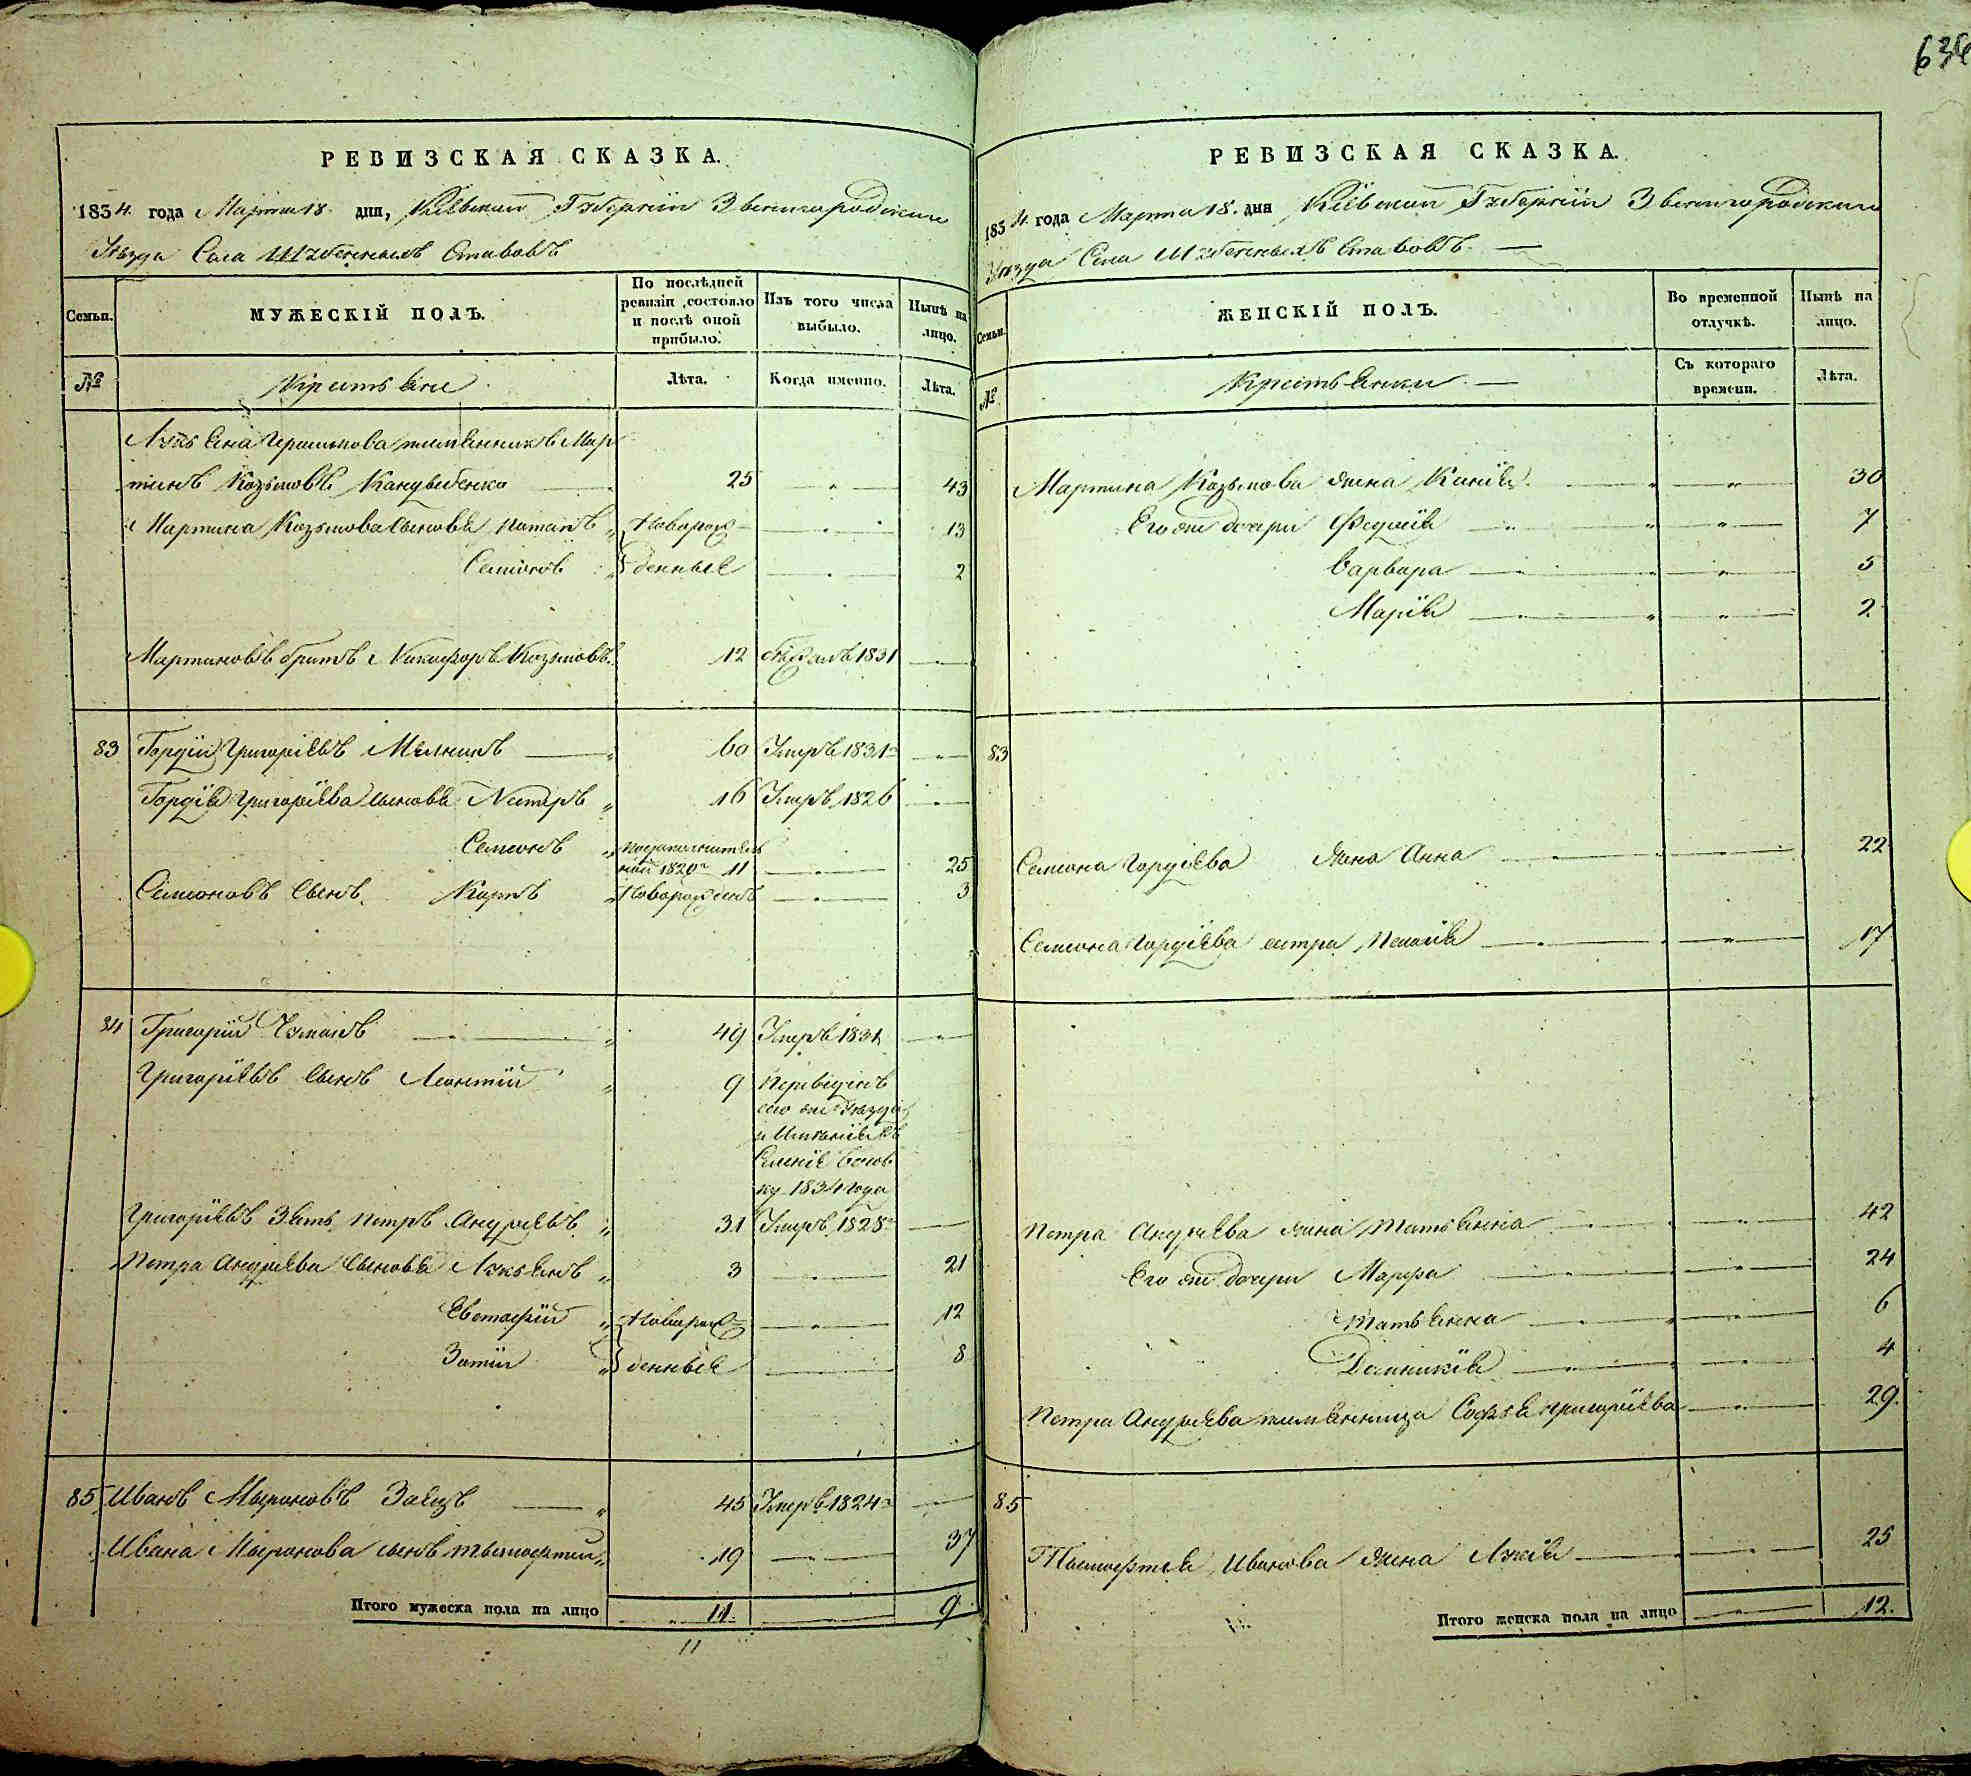 634
РЕВИЗСКАЯ СКАЗКА.
1834. года Марта 18. дня, Кіевской Губерніи Звенигородскаго
Уѣзда Села Шубенныхъ Ставовъ
Семьи.
МУЖЕСКІЙ ПОЛЪ.
По послѣдней ревизіи состояло и послѣ оной прибыло.
Изъ того числа выбыло.
Нынѣ на лицо.
№
Крестьяне
Лѣта.
Когда именно.
Лѣта.
Лукьяна Герасимова племянникъ Мар
тинъ Козьмовъ 25 43
Мартина Козьмова сыновья Потапъ Новорож 13
Семионъ денные 2
Мартиновъ братъ Никифоръ Козьмовъ. 12 1831
83 Гордій Григоріевъ Мельникъ 60 Умеръ 1831
Гордія Григоріева сыновья Нестеръ 16 Умеръ 1826
Семионъ
1820 11 25
Семионовъ сынъ Карпъ Новорожденъ 3
84 Григорій Чумакъ 49 Умеръ 1831
Григоріевъ сынъ Леонтій 9 Переведенъ
сего же Уѣзда
и Имѣнія въ
Селеніе
1834 года
Григоріевъ Зять Петръ Андреевъ 31 Умеръ 1828
Петра Андреева сыновья Лукьянъ 3 21
Евстафій Новорож 12
Зотій денные 8
85 Иванъ Мироновъ Заяцъ 45 Умеръ 1824
Ивана Миронова сынъ Тымофтей 19 37
Итого мужеска пола на лицо 11. 9
11
РЕВИЗСКАЯ СКАЗКА.
1834. года Марта 18. дня Кіевской Губерніи Звенигородскаго
Уѣзда Села Шубенныхъ Ставовъ.
Семьи.
ЖЕНСКІЙ ПОЛЪ.
Во временной отлучкѣ.
Нынѣ на лицо.
№
Крестьянки
Съ котораго времени.
Лѣта.
Мартина Козьмова жена Ксенія 30
Его же дочери Федосія 7
Варвара 5
Марія 2
83
Семиона Гордіева жена Анна 22
Семиона Гордіева сестра Пелагія 17
Петра Андреева жена Татьянна 42
Его же дочери Марфа 24
Татьянна 6
Домникія 4
Петра Андреева племянница Софья Григоріева 29.
85
Тымофтея Иванова жена Лукія 25
Итого женска пола на лицо 12.